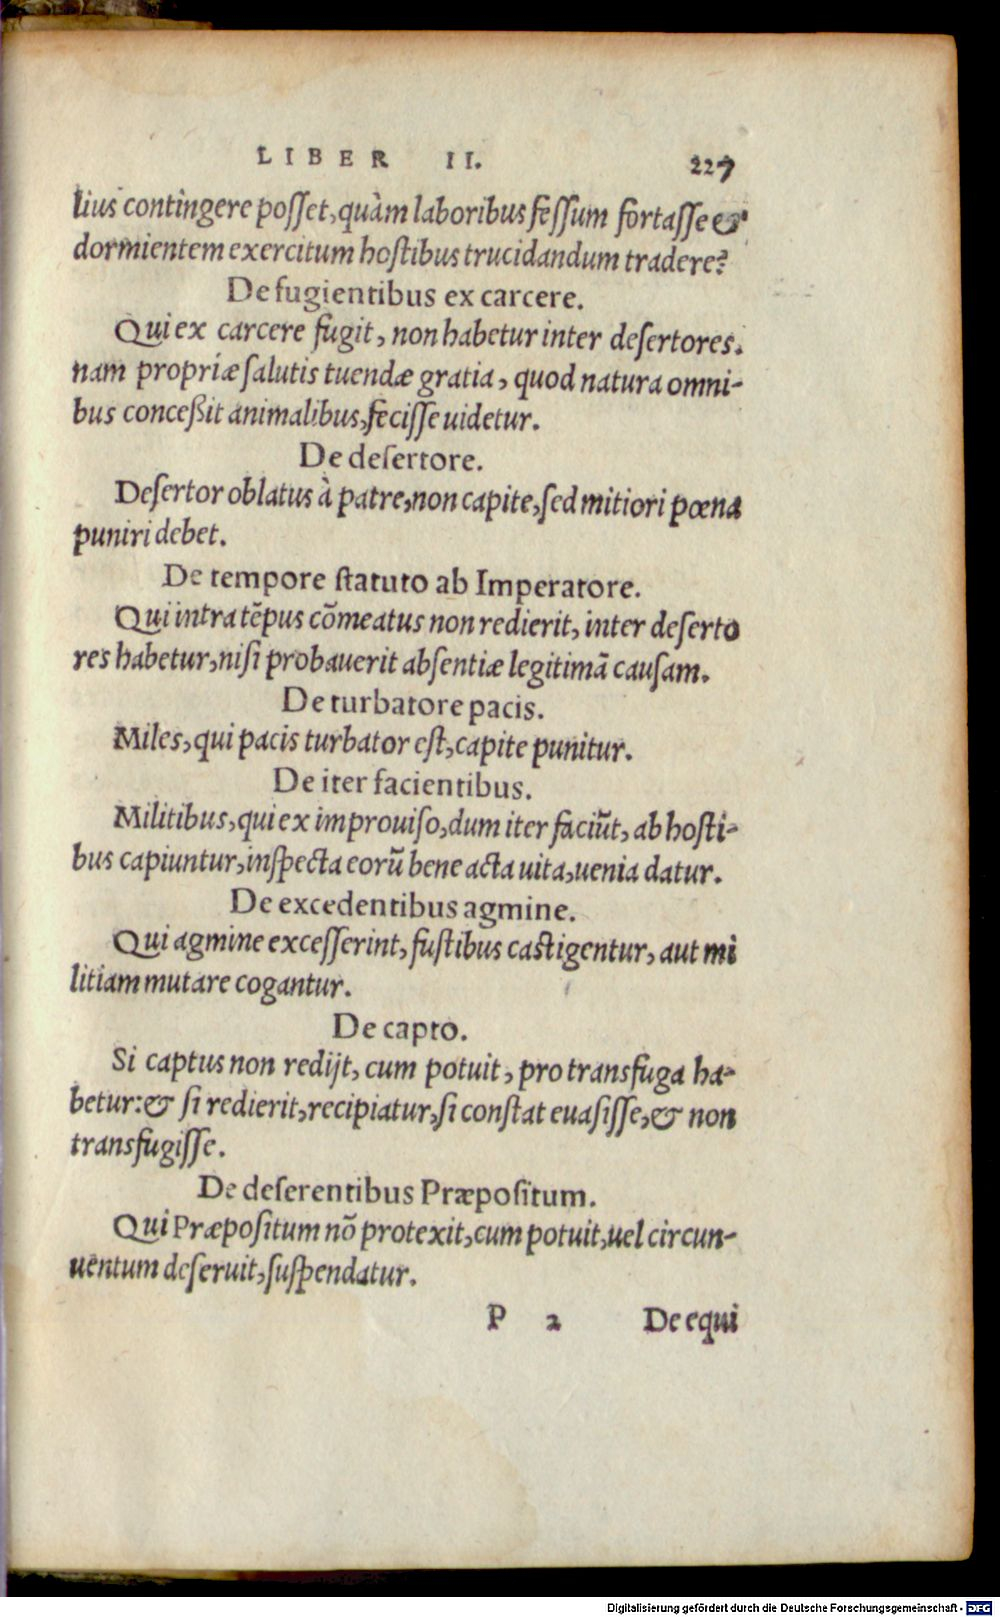 LIBER II. 227
lius contingere posſet, quàm laboribus feſſum fortaſſe &
dormientem exercitum hoſtibus trucidandum tradere?
De fugientibus ex carcere.
Qui ex carcere fugit, non habetur inter deſertores.
nam propriæ ſalutis tuendæ gratia, quod natura omni-
bus conceßit animalibus, feciſſe uidetur.
De deſertore.
Deſertor oblatus à patre, non capite, ſed mitiori pœna
puniri debet.
De tempore ſtatuto ab Imperatore.
Qui intra tẽpus cõmeatus non redierit, inter deſerto
res habetur, niſi probauerit abſentiæ legitimã cauſam.
De turbatore pacis.
Miles, qui pacis turbator eſt, capite punitur.
De iter facientibus.
Militibus, qui ex improuiſo, dum iter faciũt, ab hoſti-
bus capiuntur, inſpecta eorũ bene acta uita, uenia datur.
De excedentibus agmine.
Qui agmine exceſſerint, fuſtibus caſtigentur, aut mi
litiam mutare cogantur.
De capto.
Si captus non redijt, cum potuit, pro transfuga ha-
betur: & ſi redierit, recipiatur, ſi conſtat euaſiſſe, & non
transfugiſſe.
De deſerentibus Præpoſitum.
Qui Præpoſitum nõ protexit, cum potuit, uel circun-
uentum deſeruit, ſuſpendatur.
P 2 De equi
Digitalisierung gefördert durch die Deutsche Forschungsgemeinschaft - DFG